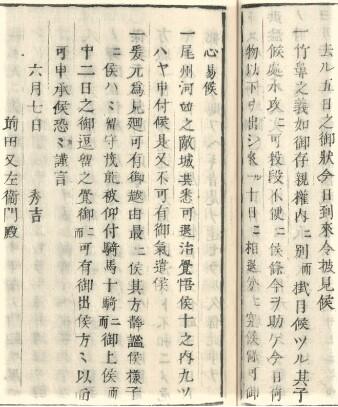 去ル五日之御狀今日到來令披見候
一竹鼻之義如御存親權內ニ別而掛目候ツル其子
候處水攻ニ可殺段不便ニ候條令ヲ助ケ今日荷
物以下ヲ出シ來ル十日ニ相退外ニ究候條可御
心易候
一尾州河西之敵城其悉可退治覺悟候十之內九ツ
ハヤ申付候是又不可有御氣遣候
一爰元爲見廻可有御越由最ニ候其方靜謐候樣子
ニ侯ハ丶留守能被仰付騎馬十騎ニ而御上候而
中二日之御逗留之覺御ニ而可有御出候方〻以面
可申承候恐〻謹言
六月七日 秀吉
前田又左衞門殿